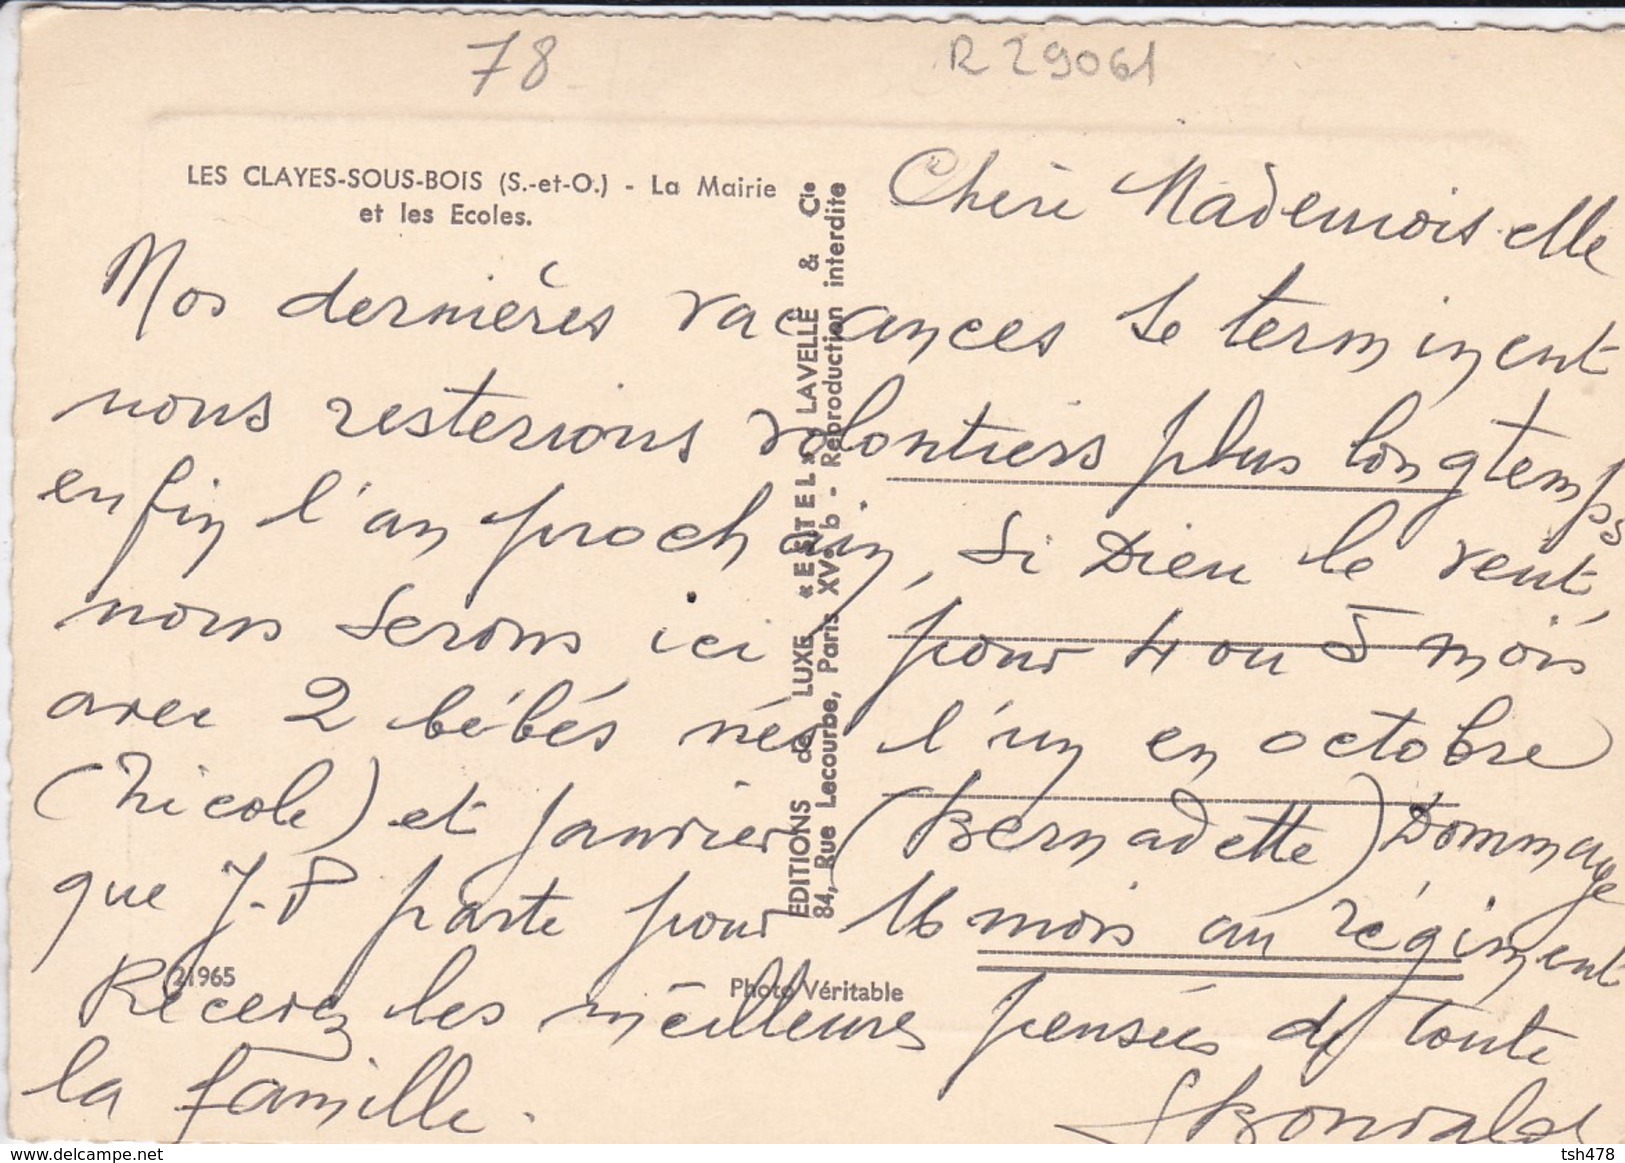 78
R 29061
LES CLAYES-SOUS-BOIS (S.-et-O.) - La Mairie
et les Ecoles.
Chère Mademoiselle
Nos dernières vacances se terminent
nous resterions volontiers plus longtemps
enfin l'an prochain, si Dieu le veut,
nous serons ici pour 4 ou 5 mois
avec 2 bébés nés l'un en octobre
(Nicole) et janvier (Bernadette) Dommage
que J-P parte pour 16 mois au régiment
Recevez les meilleures pensées de toute
la famille.
EDITIONS de LUXE « ESTEL » LAVELLE & Cie
84, Rue Lecourbe, Paris XVe b - Reproduction interdite
21965
Photo Véritable
www.delcampe.net
tsh478